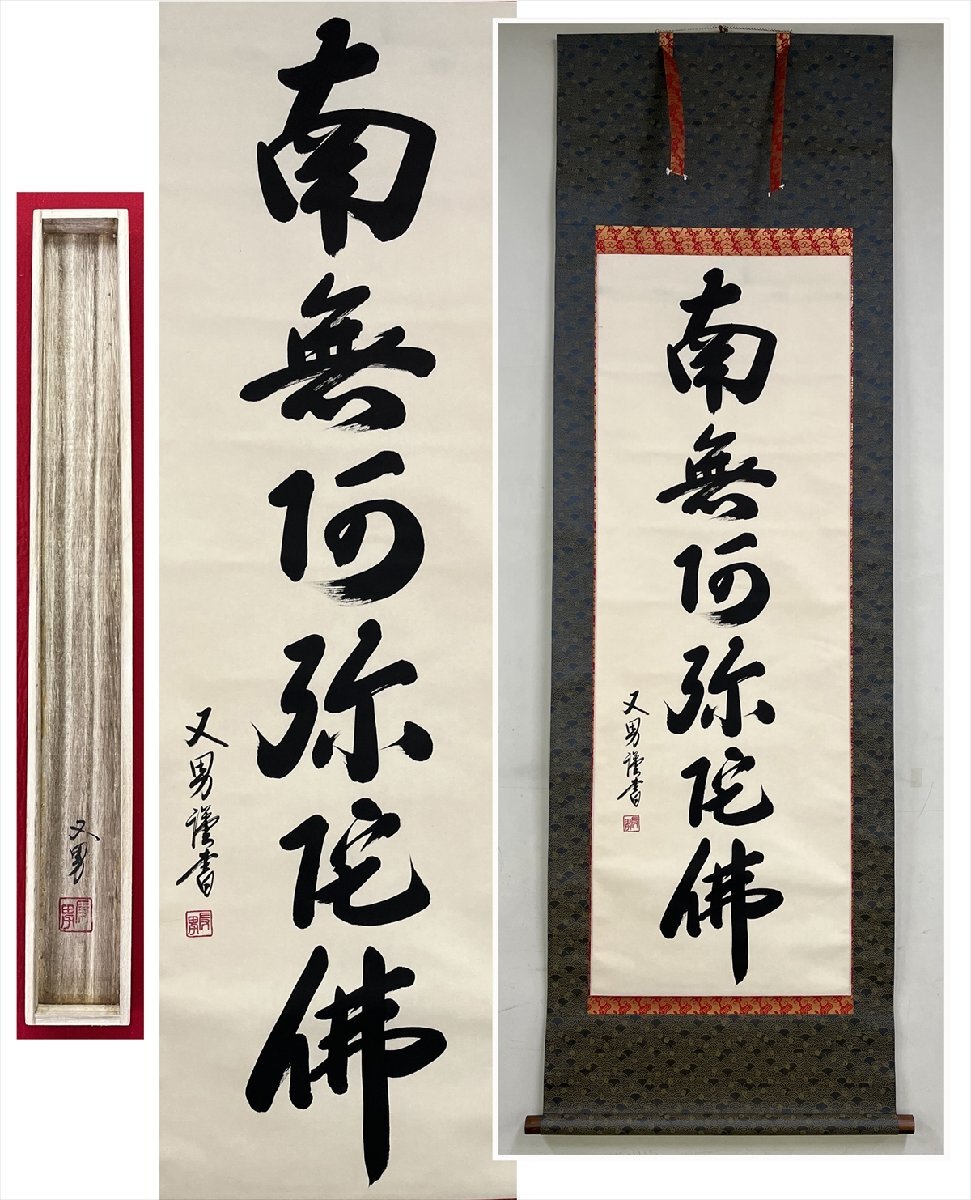 南無阿弥陀佛
又男謹書
南無阿弥陀佛
又男謹書
又男